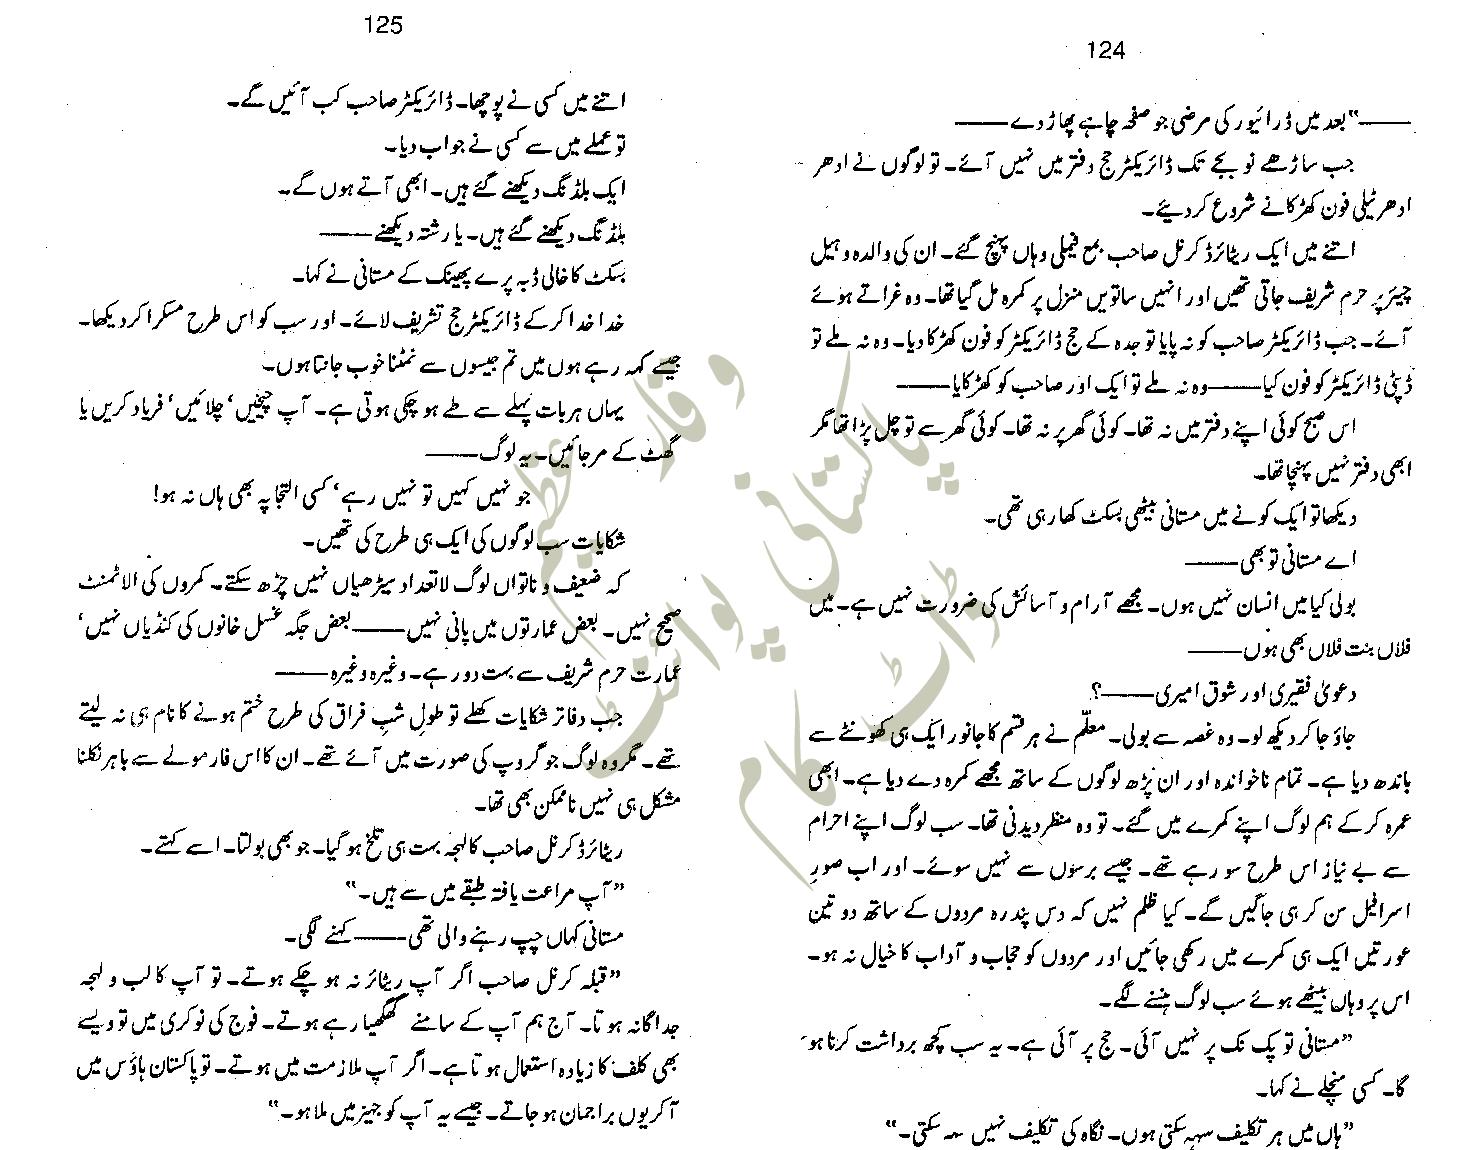 124
——"بعد میں ڈرائیور کی مرضی جو صفحہ چاہے پھاڑ دے——
جب ساڑھے نو بجے تک ڈائریکٹر حج دفتر میں نہیں آئے۔ تو لوگوں نے ادھر
ادھر ٹیلی فون کھڑکانے شروع کر دیئے۔
اتنے میں ایک ریٹائرڈ کرنل صاحب بمع فیملی وہاں پہنچ گئے۔ ان کی والدہ وہیل
چیئر پر حرم شریف جاتی تھیں اور انہیں ساتویں منزل پر کمرہ مل گیا تھا۔ وہ غراتے ہوئے
آئے۔ جب ڈائریکٹر صاحب کو نہ پایا تو جدہ کے حج ڈائریکٹر کو فون کھڑکا دیا۔ وہ نہ ملے تو
ڈپٹی ڈائریکٹر کو فون کیا——وہ نہ ملے تو ایک اور صاحب کو کھڑکایا——
اس صبح کوئی اپنے دفتر میں نہ تھا۔ کوئی گھر پر نہ تھا۔ کوئی گھر سے تو چل پڑا تھا مگر
ابھی دفتر نہیں پہنچا تھا۔
دیکھا تو ایک کونے میں مستانی بیٹھی بسکٹ کھا رہی تھی۔
اے مستانی تو بھی——
بولی کیا میں انسان نہیں ہوں۔ مجھے آرام و آسائش کی ضرورت نہیں ہے۔ میں
فلاں بنت فلاں بھی ہوں——
دعویٰ فقیری اور شوق امیری——؟
جاؤ جا کر دیکھ لو۔ وہ غصہ سے بولی۔ معلّم نے ہر قسم کا جانور ایک ہی کھونٹے سے
باندھ دیا ہے۔ تمام ناخواندہ اور ان پڑھ لوگوں کے ساتھ مجھے کمرہ دے دیا ہے۔ ابھی
عمرہ کر کے ہم لوگ اپنے کمرے میں گئے۔ تو وہ منظر دیدنی تھا۔ سب لوگ اپنے احرام
سے بے نیاز اس طرح سو رہے تھے۔ جیسے برسوں سے نہیں سوئے۔ اور اب صورِ
اسرافیل سن کر ہی جاگیں گے۔ کیا ظلم نہیں کہ دس پندرہ مردوں کے ساتھ دو تین
عورتیں ایک ہی کمرے میں رکھی جائیں اور مردوں کو حجاب و آداب کا خیال نہ ہو۔
اس پر وہاں بیٹھے ہوئے سب لوگ ہنسنے لگے۔
"مستانی تو پک نک پر نہیں آئی۔ حج پر آئی ہے۔ یہ سب کچھ برداشت کرنا ہو
گا۔ کسی منچلے نے کہا۔
"ہاں میں ہر تکلیف سہہ سکتی ہوں۔ نگاہ کی تکلیف نہیں سہہ سکتی۔"
125
اتنے میں کسی نے پوچھا۔ ڈائریکٹر صاحب کب آئیں گے۔
تو عملے میں سے کسی نے جواب دیا۔
ایک بلڈنگ دیکھنے گئے ہیں۔ ابھی آتے ہوں گے۔
بلڈنگ دیکھنے گئے ہیں۔ یا رشتہ دیکھنے——
بسکٹ کا خالی ڈبہ پرے پھینک کے مستانی نے کہا۔
خدا خدا کر کے ڈائریکٹر حج تشریف لائے۔ اور سب کو اس طرح مسکرا کر دیکھا۔
جیسے کہہ رہے ہوں میں تم جیسوں سے نمٹنا خوب جانتا ہوں۔
یہاں ہر بات پہلے سے طے ہو چکی ہوتی ہے۔ آپ چیخیں‘ چلائیں‘ فریاد کریں یا
گھٹ کے مر جائیں۔ یہ لوگ——
جو نہیں کہیں تو نہیں رہے‘ کسی التجا پہ بھی ہاں نہ ہو!
شکایات سب لوگوں کی ایک ہی طرح کی تھیں۔
کہ ضعیف و ناتواں لوگ لاتعداد سیڑھیاں نہیں چڑھ سکتے۔ کمروں کی الاٹمنٹ
صحیح نہیں۔ بعض عمارتوں میں پانی نہیں——بعض جگہ غسل خانوں کی کنڈیاں نہیں‘
عمارت حرم شریف سے بہت دور ہے۔ وغیرہ وغیرہ——
جب دفاتر شکایات کھلے تو طولِ شبِ فراق کی طرح ختم ہونے کا نام ہی نہ لیتے
تھے۔ مگر وہ لوگ جو گروپ کی صورت میں آئے تھے۔ ان کا اس فارمولے سے باہر نکلنا
مشکل ہی نہیں ناممکن بھی تھا۔
ریٹائرڈ کرنل صاحب کا لہجہ بہت ہی تلخ ہو گیا۔ جو بھی بولتا۔ اسے کہتے۔
"آپ مراعت یافتہ طبقے میں سے ہیں۔"
مستانی کہاں چپ رہنے والی تھی——کہنے لگی۔
"قبلہ کرنل صاحب اگر آپ ریٹائر نہ ہو چکے ہوتے۔ تو آپ کا لب و لہجہ
جداگانہ ہوتا۔ آج ہم آپ کے سامنے گھگھیا رہے ہوتے۔ فوج کی نوکری میں تو ویسے
بھی کلف کا زیادہ استعمال ہوتا ہے۔ اگر آپ ملازمت میں ہوتے۔ تو پاکستان ہاؤس میں
آ کر یوں براجمان ہو جاتے۔ جیسے یہ آپ کو جہیز میں ملا ہو۔"
پاکستانی پوائنٹ
ڈاٹ کام